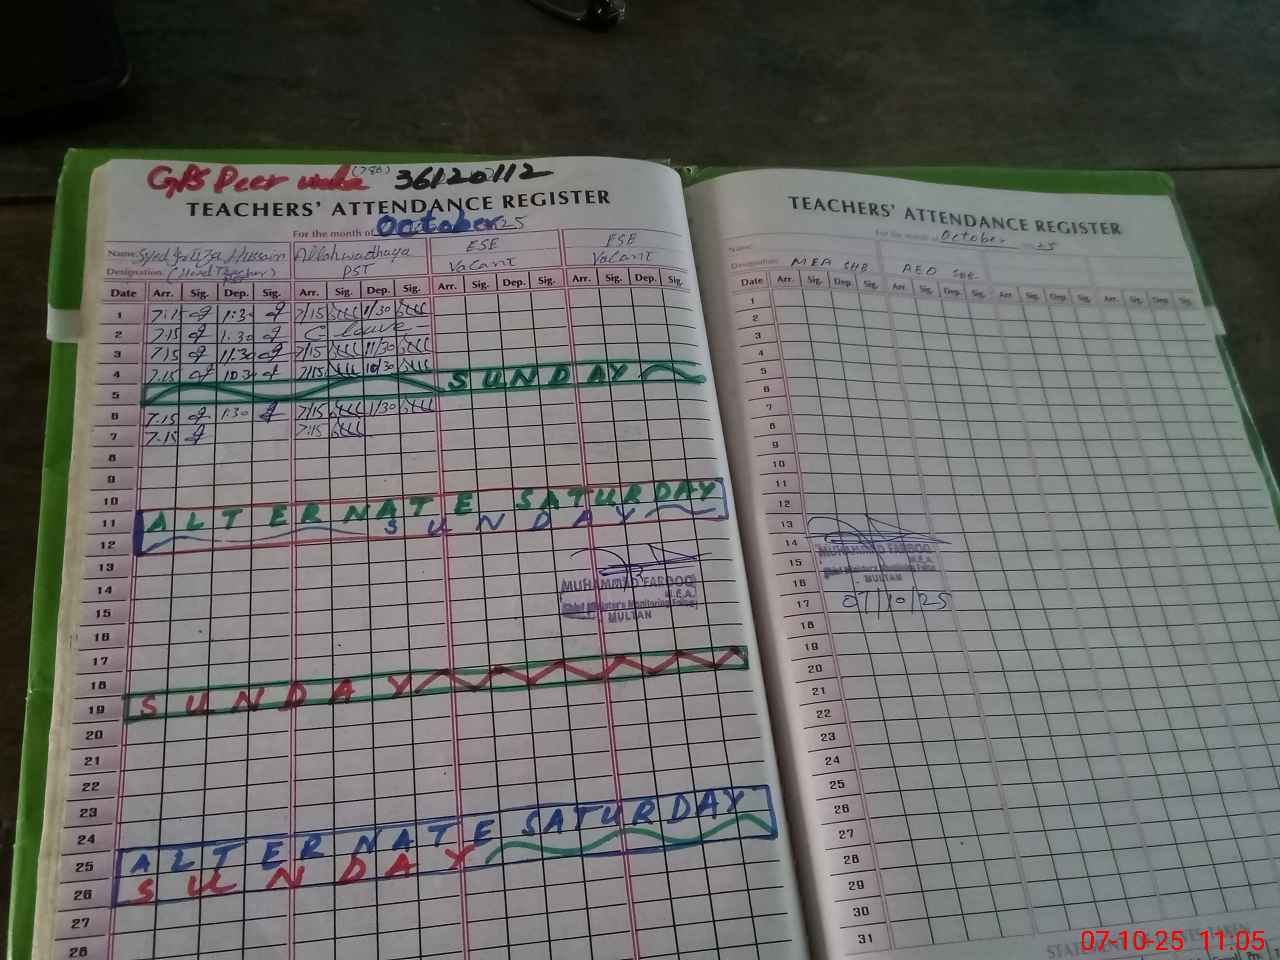 GPS Peer (786) 36120112
TEACHERS' ATTENDANCE REGISTER
For the month of October 25
Name: Syed Hussain Allahwadhaya ESE ESE
Designation: (Head Teacher) PST Vacant Vacant
Date Arr. Sig. Dep. Sig. Arr. Sig. Dep. Sig. Arr. Sig. Dep. Sig. Arr. Sig. Dep. Sig.
1 7:15 1:30 7/15 1/30
2 7:15 1:30 C leave
3 7:15 11:30 7/15 11/30
4 7:15 10:30 7/15 10/30
5 SUNDAY
6 7:15 1:30 7/15 1/30
7 7:15 7:15
8
9
10
11 ALTERNATE SATURDAY
12 SUNDAY
13
14
15
16
17
18
19 SUNDAY
20
21
22
23
24
25 ALTERNATE SATURDAY
26 SUNDAY
27
28
MUHAMMAD FAROOQ
M.E.A.
Chief Minister's Monitoring Force
MULTAN
TEACHERS' ATTENDANCE REGISTER
For the month of October 25
Name:
Designation: MEA SHB AEO SHB
Date Arr. Sig. Dep. Sig. Arr. Sig. Dep. Sig. Arr. Sig. Dep. Sig. Arr. Sig. Dep. Sig.
1
2
3
4
5
6
7
8
9
10
11
12
13
14
15
16
17
18
19
20
21
22
23
24
25
26
27
28
29
30
31
MUHAMMAD FAROOQ
M.E.A.
Chief Minister's Monitoring Force
MULTAN
07/10/25
07-10-25 11:05